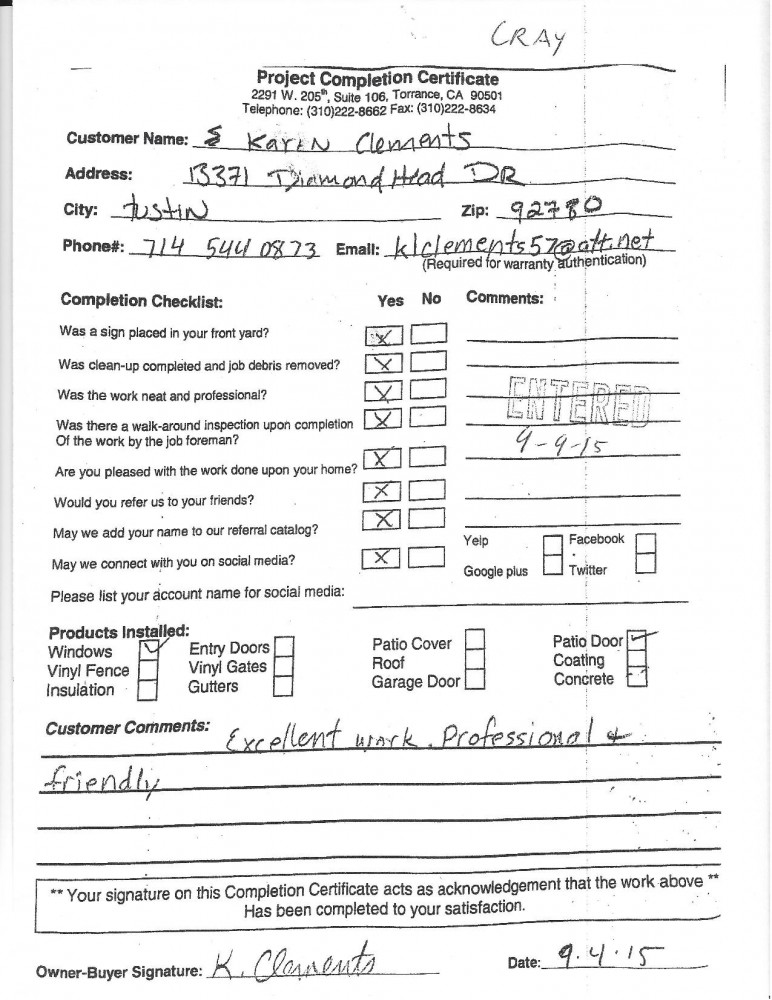 CRAY
Project Completion Certificate
2291 W. 205th, Suite 106, Torrance, CA 90501
Telephone: (310)222-8662 Fax: (310)222-8634
Customer Name: Karen Clements
Address: 13371 Diamond Head DR
City: Tustin Zip: 92780
Phone#: 714 544 0873 Email: klclements57@att.net
(Required for warranty authentication)
Completion Checklist: Yes No Comments:
Was a sign placed in your front yard? X
Was clean-up completed and job debris removed? X
Was the work neat and professional? X
ENTERED
Was there a walk-around inspection upon completion X
Of the work by the job foreman?
9-9-15
Are you pleased with the work done upon your home? X
Would you refer us to your friends? X
May we add your name to our referral catalog? X
Yelp Facebook
May we connect with you on social media? X
Google plus Twitter
Please list your account name for social media:
Products Installed:
Windows ✓ Entry Doors Patio Cover Patio Door ✓
Vinyl Fence Vinyl Gates Roof Coating
Insulation Gutters Garage Door Concrete
Customer Comments: Excellent work. Professional &
friendly
** Your signature on this Completion Certificate acts as acknowledgement that the work above **
Has been completed to your satisfaction.
Owner-Buyer Signature: K. Clements Date: 9.4.15